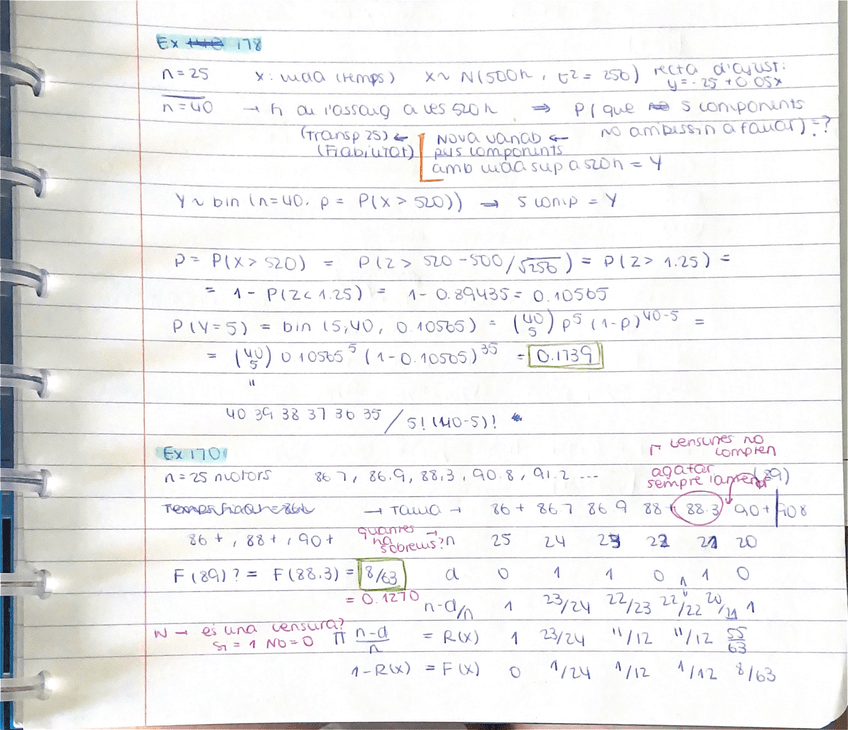 Ex 178
n=25 x: vida (temps) x~N(500h, σ2=256) recta d'ajust:
y=-25+0.05x
n=40 → fi de l'assaig a les 520h ⇒ P(que 5 components
no arribessin a fallar)=?
(Transp 25) ← Nova variab ←
(Fiabilitat) nº components
amb vida sup a 520h = Y
Y~bin(n=40, p=P(X>520)) → 5 comp = Y
p = P(X>520) = P(Z>520-500/√256) = P(Z>1.25) =
= 1-P(Z<1.25) = 1-0.89435 = 0.10565
P(Y=5) = bin(5,40, 0.10565) = (40 5) p^5 (1-p)^40-5 =
= (40 5) 0.10565^5 (1-0.10565)^35 = 0.1739
"
40 39 38 37 36 35 / 5!(40-5)!
Ex 170
censures no
compten
n=25 motors 86.7, 86.9, 88.3, 90.8, 91.2 ...
agafar
sempre l'anterior (89)
→ Taula → 86+ 86.7 86.9 88+ 88.3 90+ 90.8
86+, 88+, 90+ quantes
n'hi ha
sobreviS? → n 25 24 23 22 21 20
F(89)? = F(88.3) = 8/63 d 0 1 1 0 1 0
= 0.1270 n-d/n 1 23/24 22/23 22/22 20/21 1
N → és una censura?
Sí=1 NO=0 Π n-d/n = R(x) 1 23/24 11/12 11/12 55/63
1-R(x) = F(x) 0 1/24 1/12 1/12 8/63